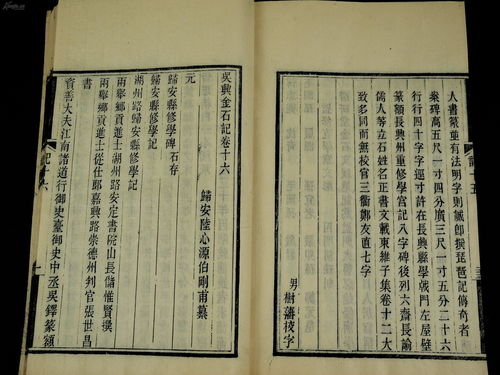 人書篆並有法明字則誠卽撰琵琶記傳奇者
案碑高五尺一寸四分廣三尺一寸五分二十六
行行四十字字逕寸許在長興縣學戟門左屋壁
篆額長興州重修學宮記八字碑後列六齋長諭
儒人等立石姓名正書文載東維子集卷十二大
致多同而無校官三衢鄭友直七字
男樹藩校字
吳興金石記卷十六
歸安陸心源伯剛甫纂
元
歸安縣修學碑 石存
歸安縣修學記
湖州路歸安縣修學記
前鄉貢進士湖州路安定書院山長儲惟賢撰
前鄉貢進士從仕郎嘉興路崇德州判官張世昌
書
資善大夫江南諸道行御史臺御史中丞吳鐸篆額
記十六